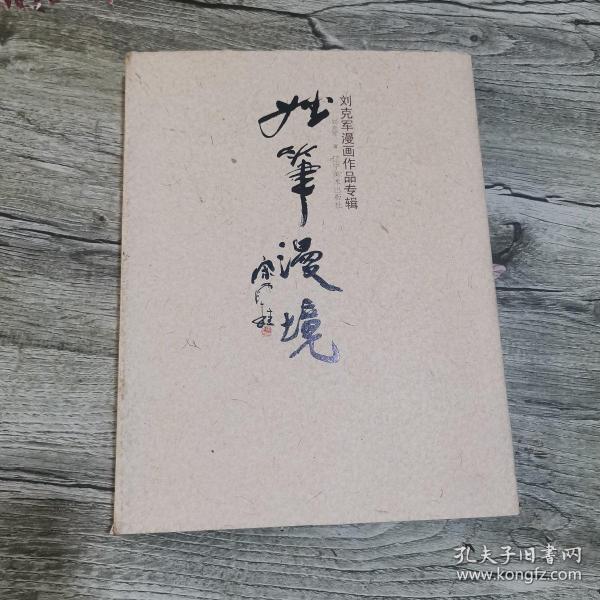 刘克军漫画作品专辑
拙筆漫境
孔夫子旧書网
www.kongfz.com